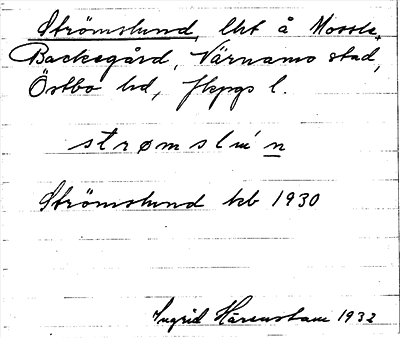 Strömslund, lht å Mossle,
Backegård, Värnamo stad,
Östbo hd, Jkpgs l.
strømslun
Strömslund kb 1930
Ingrid Härenstam 1932